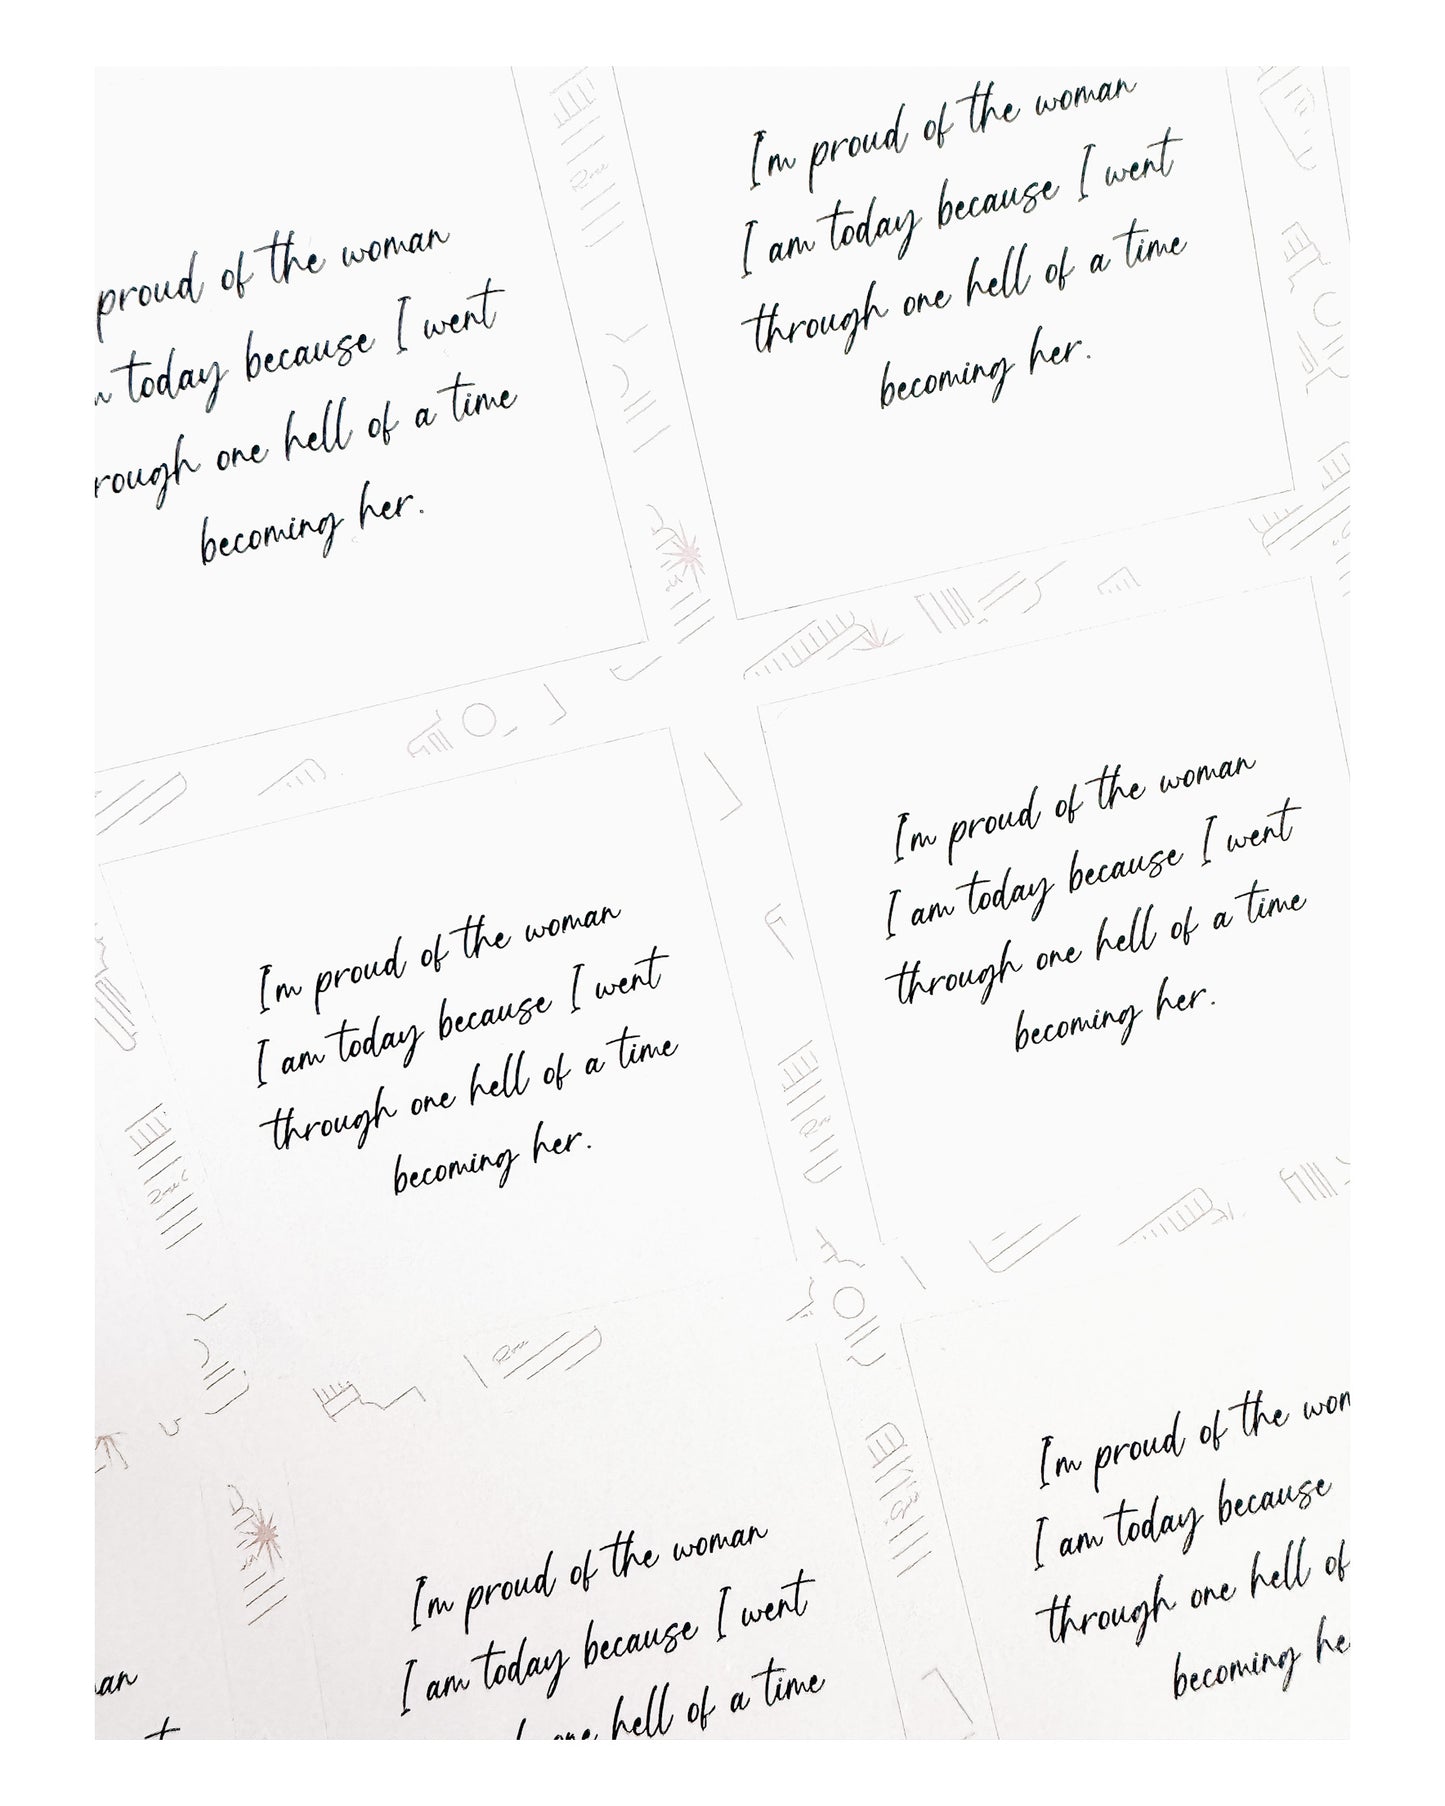 proud of the woman
today because I went
rough one hell of a time
becoming her.
Im proud of the woman
I am today because I went
through one hell of a time
becoming her.
Im proud of the woman
I am today because I went
through one hell of a time
becoming her.
Im proud of the woman
I am today because I went
through one hell of a time
becoming her.
an
Im proud of the woman
I am today because I went
one hell of a time
Im proud of the wom
I am today because
through one hell of
becoming he